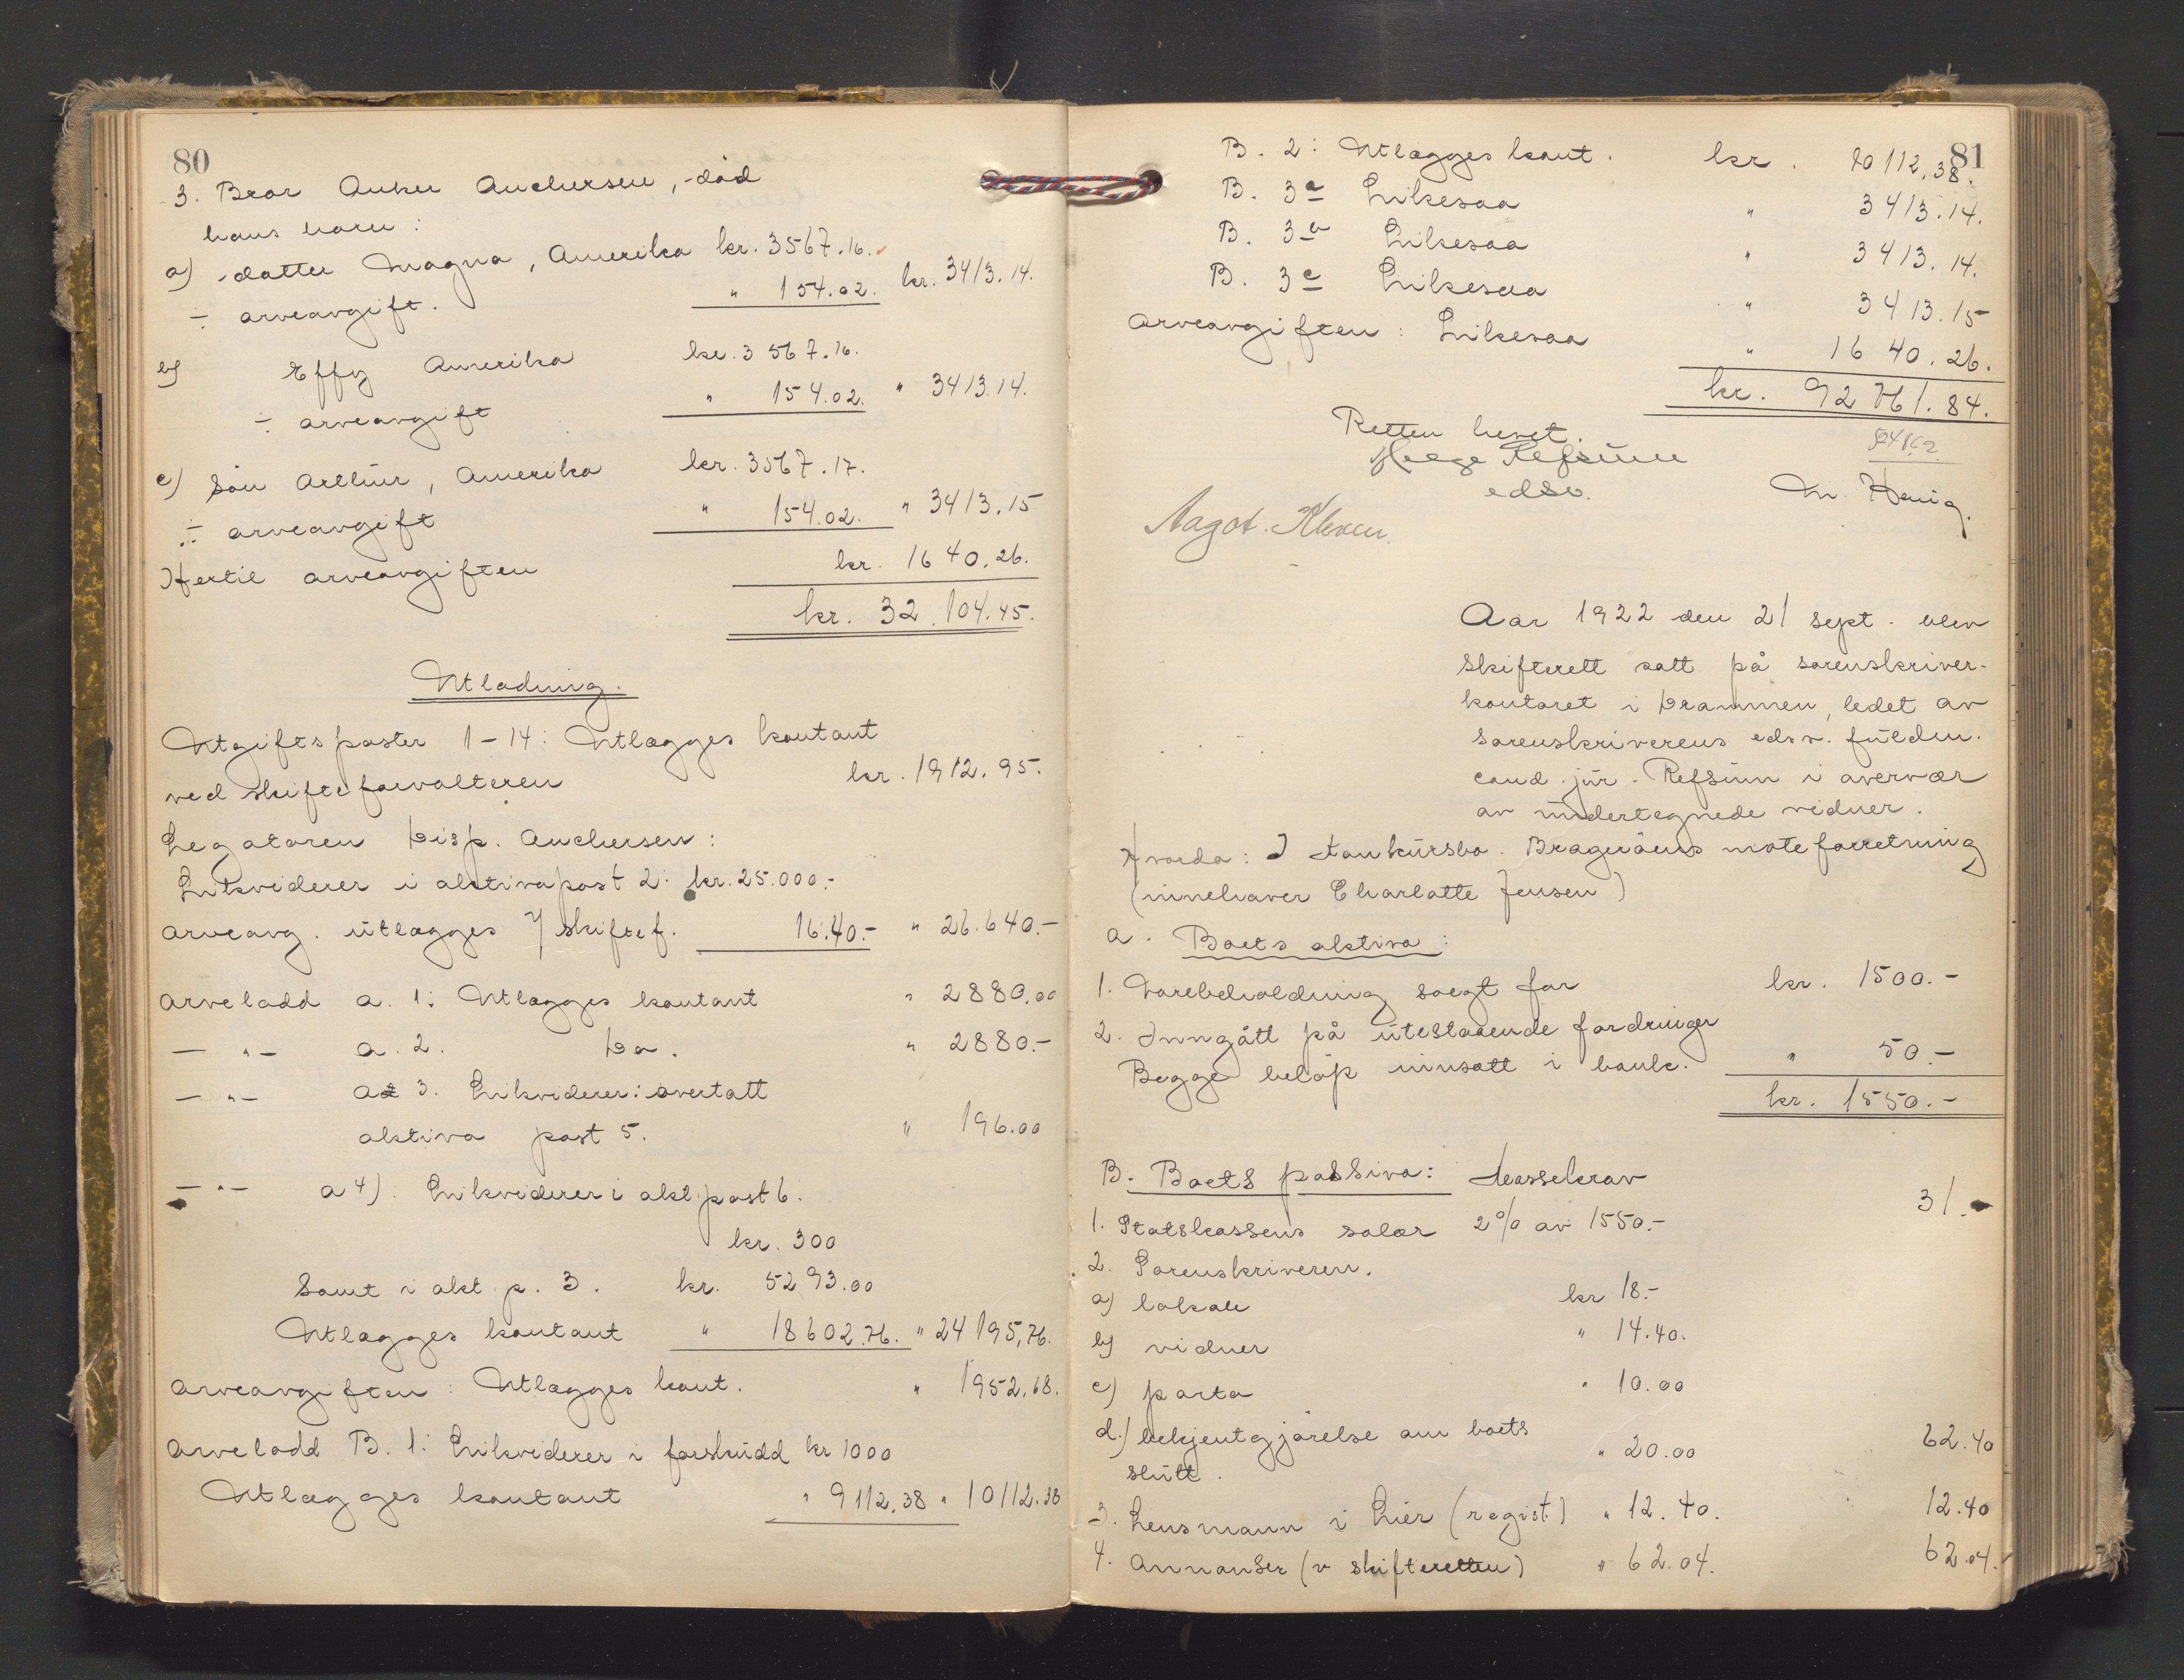 80
3. Bror Anker Anchersen, død
hans barn:
a) datter Magna, Amerika kr. 3567.16.
÷ arveavgift. " 154.02. kr. 3413.14.
b) Effy Amerika kr. 3567.16.
÷ arveavgift " 154.02. " 3413.14.
c) Søn Arthur, Amerika kr. 3567.17.
÷ arveavgift " 154.02. " 3413.15
Hertil arveavgiften kr. 1640.26.
kr. 32.104.45.
Utlodning.
Utgiftsposter 1-14: Utlægges kontant
ved skifteforvalteren kr. 1912.95.
Legatoren Disp. Anchersen:
Likviderer i aktivapost 2: kr. 25.000.-
arveavg. utlægges v/ skiftef. 16.40.- " 26.640.-
Arvelodd a. 1: Utlægges kontant " 2880.00
— " — a. 2. Do. " 2880.-
— " — a 3. Likviderer: overtatt
aktiva post 5. " 196.00
— " — a 4). Likviderer i akt. post 6.
kr. 300
Samt i akt. p. 3. kr. 5293.00
Utlægges kontant " 18602.76. " 24195,76.
Arveavgiften: Utlægges kont. " 1952.68.
Arvelodd B. 1: Likviderer i forskudd kr 1000
Utlægges kontant " 9112.38 " 10112.38
81
B. 2: Utlægges kont. kr. 10112,38.
B. 3a Likesaa " 3413.14.
B. 3b Likesaa " 3413.14.
B. 3c Likesaa " 3413.15
Arveavgiften: Likesaa " 1640.26.
kr. 92761.84.
Retten hevet.
Helge Refsum
edsv.
M. Henig.
Aagot. Kleven.
Aar 1922 den 21 sept. blev
skifterett satt på sorenskriver-
kontoret i Drammen, ledet av
sorenskriverens edsv. fuldm.
cand. jur. Refsum i overvær
av undertegnede vidner.
Hvorda: I konkursbo. Bragerøens moteforretning
(innehaver Charlotte Jensen)
a. Boets aktiva:
1. Varebeholdning solgt for kr. 1500.-
2. Inngått på utestaaende fordringer
Begge beløp innsatt i bank. " 50.-
kr. 1550.-
B. Boets passiva: Massekrav
1. Statskassens salær 2% av 1550.- 31.-
2. Sorenskriveren.
a) lokale kr 18.-
b) vidner " 14.40.
c) porto " 10.00
d.) bekjentgjørelse om boets
slutt. " 20.00 62.40
3. Lensmann i Lier (regist.) " 12.40. 12.40
4. Annonser (v skifteretten) " 62.04. 62.04.